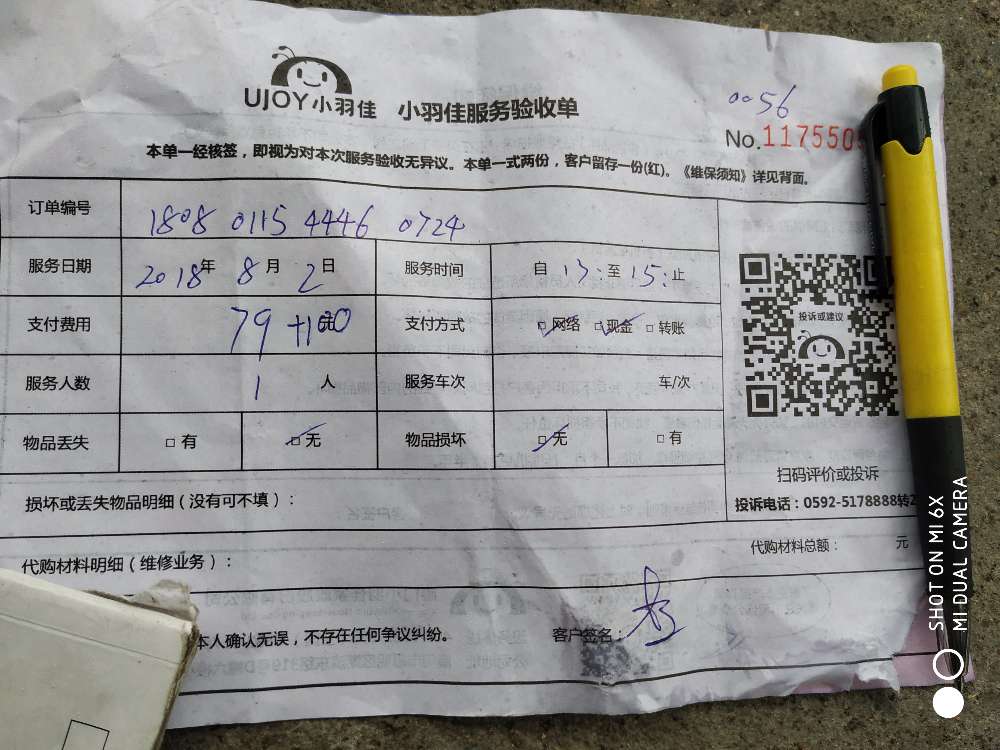 UJOY小羽佳 小羽佳服务验收单
0056
No.117550
本单一经核签，即视为对本次服务验收无异议。本单一式两份，客户留存一份(红)。《维保须知》详见背面。
订单编号 1808 0115 4446 0724
服务日期 2018年 8月 2日 服务时间 自 13: 至 15: 止
支付费用 79 +100 元 支付方式 网络 现金 转账
服务人数 1 人 服务车次 车/次
物品丢失 有 无 物品损坏 无 有
投诉或建议
扫码评价或投诉
投诉电话：0592-5178888转2
损坏或丢失物品明细（没有可不填）：
代购材料总额： 元
代购材料明细（维修业务）：
本人确认无误，不存在任何争议纠纷。 客户签名：
SHOT ON MI 6X
MI DUAL CAMERA